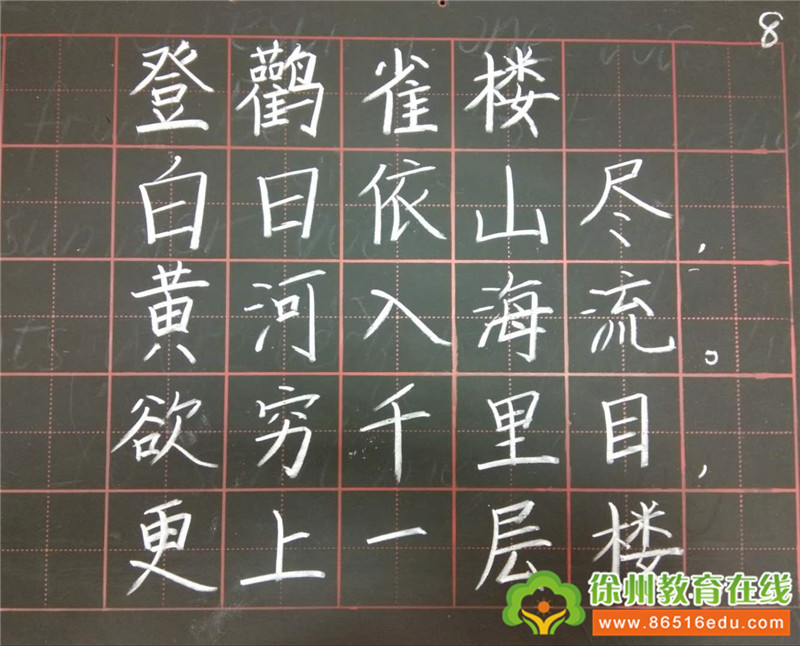 8
登鸛雀楼
白日依山尽,
黄河入海流。
欲穷千里目,
更上一层楼
徐州教育在线
www.86516edu.com